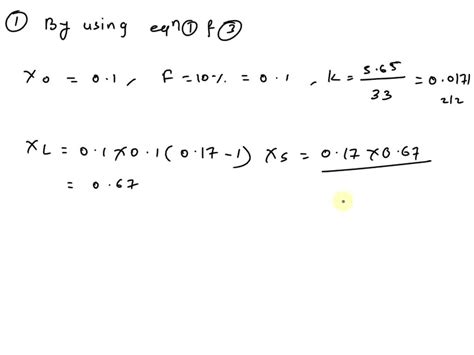 ① By using eqn ① & ③
X0 = 0.1, F = 10% = 0.1, K = 5.65/33 = 0.0171212
XL = 0.1 × 0.1 (0.17 - 1) XS = 0.17 × 0.67
= 0.67